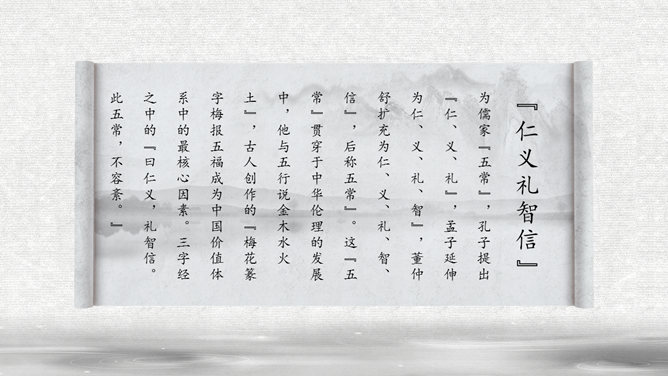 『仁义礼智信』
为儒家『五常』，孔子提出
『仁、义、礼』，孟子延伸
为仁、义、礼、智』，董仲
舒扩充为仁、义、礼、智、
信』，后称五常』。这『五
常』贯穿于中华伦理的发展
中，他与五行说金木水火
土』，古人创作的『梅花篆
字梅报五福成为中国价值体
系中的最核心因素。三字经
之中的『曰仁义，礼智信。
此五常，不容紊。』